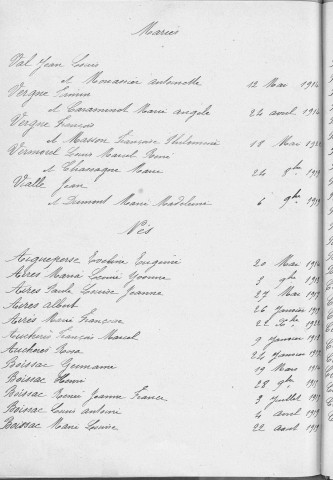 Mariés
Val Jean Louis
et Moussier Antoinette 12 Mai 1914
Vergne
et Marie Angèle 24 avril 1914
Vergne François
et Masson Françoise Philomène 18 Mai
Vermorel Louis Marcel Rémi
et Chassagne Marie 24 8bre 1919
Vialle Jean
et Dumont Marie Madeleine 6 9bre 1919
Nés
Aigueperse Eugénie 20 Mai
Aires Maria Louise Yvonne 3 9bre 1919
Aires Paule Louise Jeanne 27 Mai 1919
Aires Albert 26 janvier 1919
Airès Marie Françoise 22 Xbre
François Marcel 9 janvier 1919
Rosa 24 janvier
Boissac Germaine 19 Mars
Boissac Henri 28 9bre 1919
Boissac Jeanne France 3 juillet 1919
Boissac Louis Antoine 4 avril 1919
Boissac Marie Louise 22 avril 1919